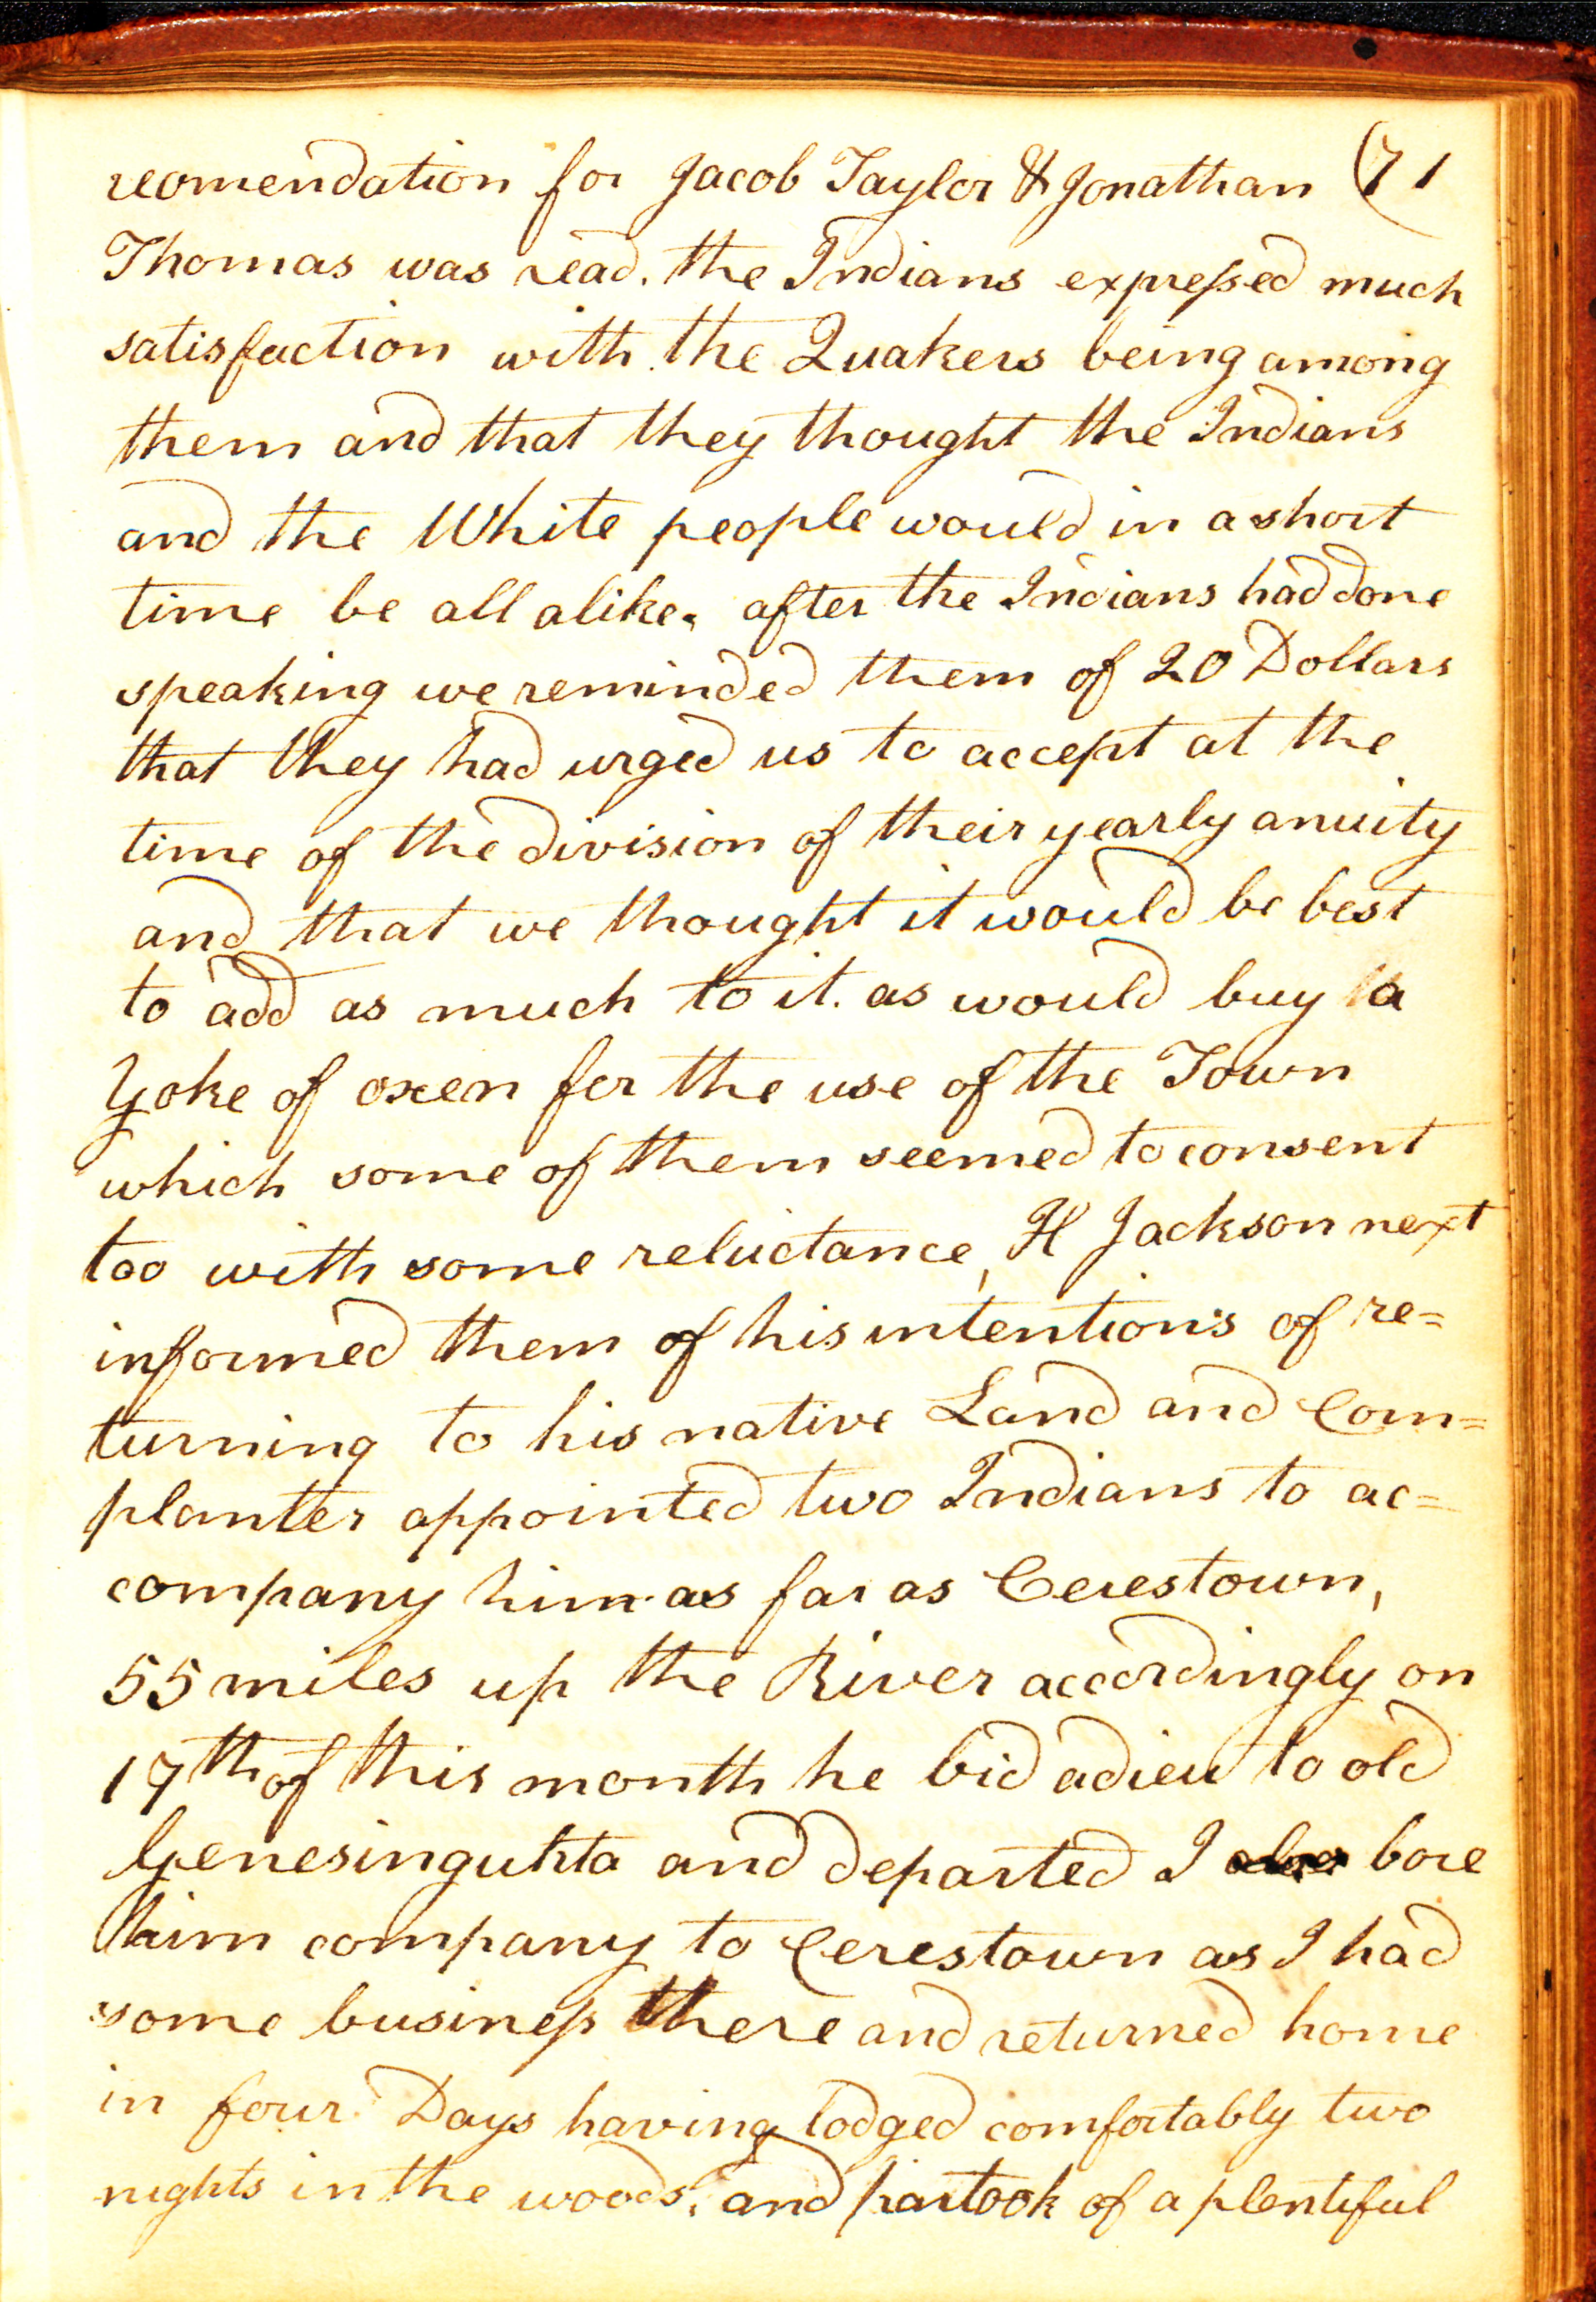 recomendation for Jacob Taylor & Jonathan (71
Thomas was read. the Indians expressed much
satisfaction with the Quakers being among
them and that they thought the Indians
and the White people would in a short
time be all alike. after the Indians had done
speaking we reminded them of 20 Dollars
that they had urged us to accept at the
time of the division of their yearly anuity
and that we thought it would be best
to add as much to it. as would buy a
Yoke of oxen for the use of the Town
which some of them seemed to consent
too with some reluctance, H Jackson next
informed them of his intentions of re=
turning to his native Land and Corn=
planter appointed two Indians to ac=
company him as far as Cerestown,
55 miles up the River accordingly on
17th of this month he bid adieu to old
Genesinguhta and departed I bore
him company to Cerestown as I had
some business there and returned home
in four Days having lodged comfortably two
nights in the woods, and partook of a plentiful